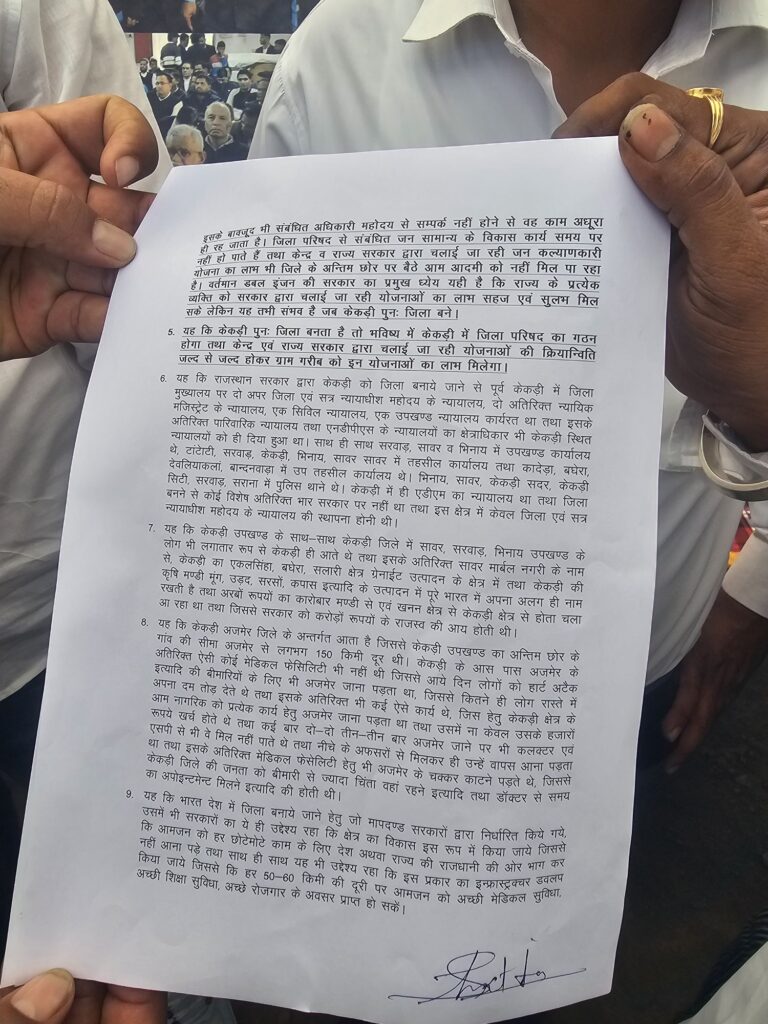 इसके बावजूद भी संबंधित अधिकारी महोदय से सम्पर्क नहीं होने से वह काम अधूरा
ही रह जाता है। जिला परिषद से संबंधित जन सामान्य के विकास कार्य समय पर
नहीं हो पाते हैं तथा केन्द्र व राज्य सरकार द्वारा चलाई जा रही जन कल्याणकारी
योजना का लाभ भी जिले के अन्तिम छोर पर बैठे आम आदमी को नहीं मिल पा रहा
है। वर्तमान डबल इंजन की सरकार का प्रमुख ध्येय यही है कि राज्य के प्रत्येक
व्यक्ति को सरकार द्वारा चलाई जा रही योजनाओं का लाभ सहज एवं सुलभ मिल
सके लेकिन यह तभी संभव है जब केकड़ी पुनः जिला बने।
5. यह कि केकड़ी पुनः जिला बनता है तो भविष्य में केकड़ी में जिला परिषद का गठन
होगा तथा केन्द्र एवं राज्य सरकार द्वारा चलाई जा रही योजनाओं की क्रियान्विति
जल्द से जल्द होकर ग्राम गरीब को इन योजनाओं का लाभ मिलेगा।
6. यह कि राजस्थान सरकार द्वारा केकड़ी को जिला बनाये जाने से पूर्व केकड़ी में जिला
मुख्यालय पर दो अपर जिला एवं सत्र न्यायाधीश महोदय के न्यायालय, दो अतिरिक्त न्यायिक
मजिस्ट्रेट के न्यायालय, एक सिविल न्यायालय, एक उपखण्ड न्यायालय कार्यरत था तथा इसके
अतिरिक्त पारिवारिक न्यायालय तथा एनडीपीएस के न्यायालयों का क्षेत्राधिकार भी केकड़ी स्थित
न्यायालयों को ही दिया हुआ था। साथ ही साथ सरवाड़, सावर व भिनाय में उपखण्ड कार्यालय
थे, टांटोटी, सरवाड़, केकड़ी, भिनाय, सावर सावर में तहसील कार्यालय तथा कादेड़ा, बघेरा,
देवलियाकलां, बान्दनवाड़ा में उप तहसील कार्यालय थे। भिनाय, सावर, केकड़ी सदर, केकड़ी
सिटी, सरवाड़, सराना में पुलिस थाने थे। केकड़ी में ही एडीएम का न्यायालय था तथा जिला
बनने से कोई विशेष अतिरिक्त भार सरकार पर नहीं था तथा इस क्षेत्र में केवल जिला एवं सत्र
न्यायाधीश महोदय के न्यायालय की स्थापना होनी थी।
7. यह कि केकड़ी उपखण्ड के साथ–साथ केकड़ी जिले में सावर, सरवाड़, भिनाय उपखण्ड के
लोग भी लगातार रूप से केकड़ी ही आते थे तथा इसके अतिरिक्त सावर मार्बल नगरी के नाम
से, केकड़ी का एकलसिंहा, बघेरा, सलारी क्षेत्र ग्रेनाईट उत्पादन के क्षेत्र में तथा केकड़ी की
कृषि मण्डी मूंग, उड़द, सरसों, कपास इत्यादि के उत्पादन में पूरे भारत में अपना अलग ही नाम
रखती है तथा अरबों रूपयों का कारोबार मण्डी से एवं खनन क्षेत्र से केकड़ी क्षेत्र से होता चला
आ रहा था तथा जिससे सरकार को करोड़ों रूपयों के राजस्व की आय होती थी।
8. यह कि केकड़ी अजमेर जिले के अन्तर्गत आता है जिससे केकड़ी उपखण्ड का अन्तिम छोर के
गांव की सीमा अजमेर से लगभग 150 किमी दूर थी। केकड़ी के आस पास अजमेर के
अतिरिक्त ऐसी कोई मेडिकल फेसिलिटी भी नहीं थी जिससे आये दिन लोगों को हार्ट अटैक
इत्यादि की बीमारियों के लिए भी अजमेर जाना पड़ता था, जिससे कितने ही लोग रास्ते में
अपना दम तोड़ देते थे तथा इसके अतिरिक्त भी कई ऐसे कार्य थे, जिस हेतु केकड़ी क्षेत्र के
आम नागरिक को प्रत्येक कार्य हेतु अजमेर जाना पड़ता था तथा उसमें ना केवल उसके हजारों
रूपये खर्च होते थे तथा कई बार दो–दो तीन–तीन बार अजमेर जाने पर भी कलक्टर एवं
एसपी से भी वे मिल नहीं पाते थे तथा नीचे के अफसरों से मिलकर ही उन्हें वापस आना पड़ता
था तथा इसके अतिरिक्त मेडिकल फेसेलिटी हेतु भी अजमेर के चक्कर काटने पड़ते थे, जिससे
केकड़ी जिले की जनता को बीमारी से ज्यादा चिंता वहां रहने इत्यादि तथा डॉक्टर से समय
का अपोइन्टमेन्ट मिलने इत्यादि की होती थी।
9. यह कि भारत देश में जिला बनाये जाने हेतु जो मापदण्ड सरकारों द्वारा निर्धारित किये गये,
उसमें भी सरकारों का ये ही उद्देश्य रहा कि क्षेत्र का विकास इस रूप में किया जाये जिससे
कि आमजन को हर छोटेमोटे काम के लिए देश अथवा राज्य की राजधानी की ओर भाग कर
नहीं आना पड़े तथा साथ ही साथ यह भी उद्देश्य रहा कि इस प्रकार का इन्फ्रास्ट्रक्चर डवलप
किया जाये जिससे कि हर 50–60 किमी की दूरी पर आमजन को अच्छी मेडिकल सुविधा,
अच्छी शिक्षा सुविधा, अच्छे रोजगार के अवसर प्राप्त हो सकें।